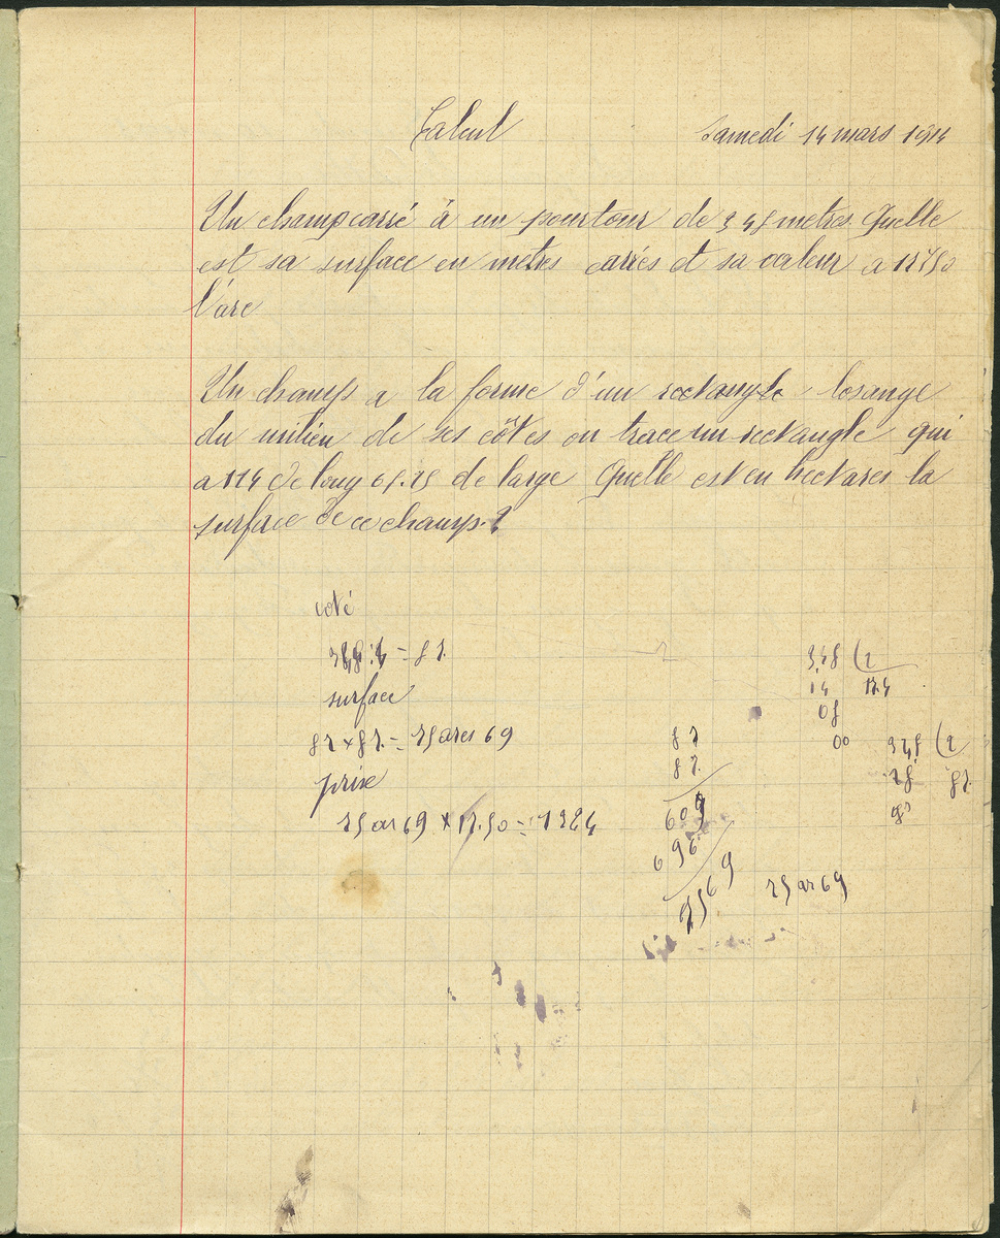 Calcul
Samedi 14 mars 1914
Un champ carré à un pourtour de 348 metres. Quelle
est sa surface en metres carrés et sa valeur a 17.50
l'are
Un champs a la forme d'un rectangle losange
du milieu de ses côtes on trace un rectangle qui
a 114 de long 68.25 de large Quelle est en hectares la
surface de ce champs.?
côté
348 : 4 = 87.
surface
87 x 87 = 75 ares 69
prix
75 ar 69 x 17.50 = 1324
87
87
609
696
7569
75 ar 69
348 (2
14 174
08
00
348 (4
28 87
0